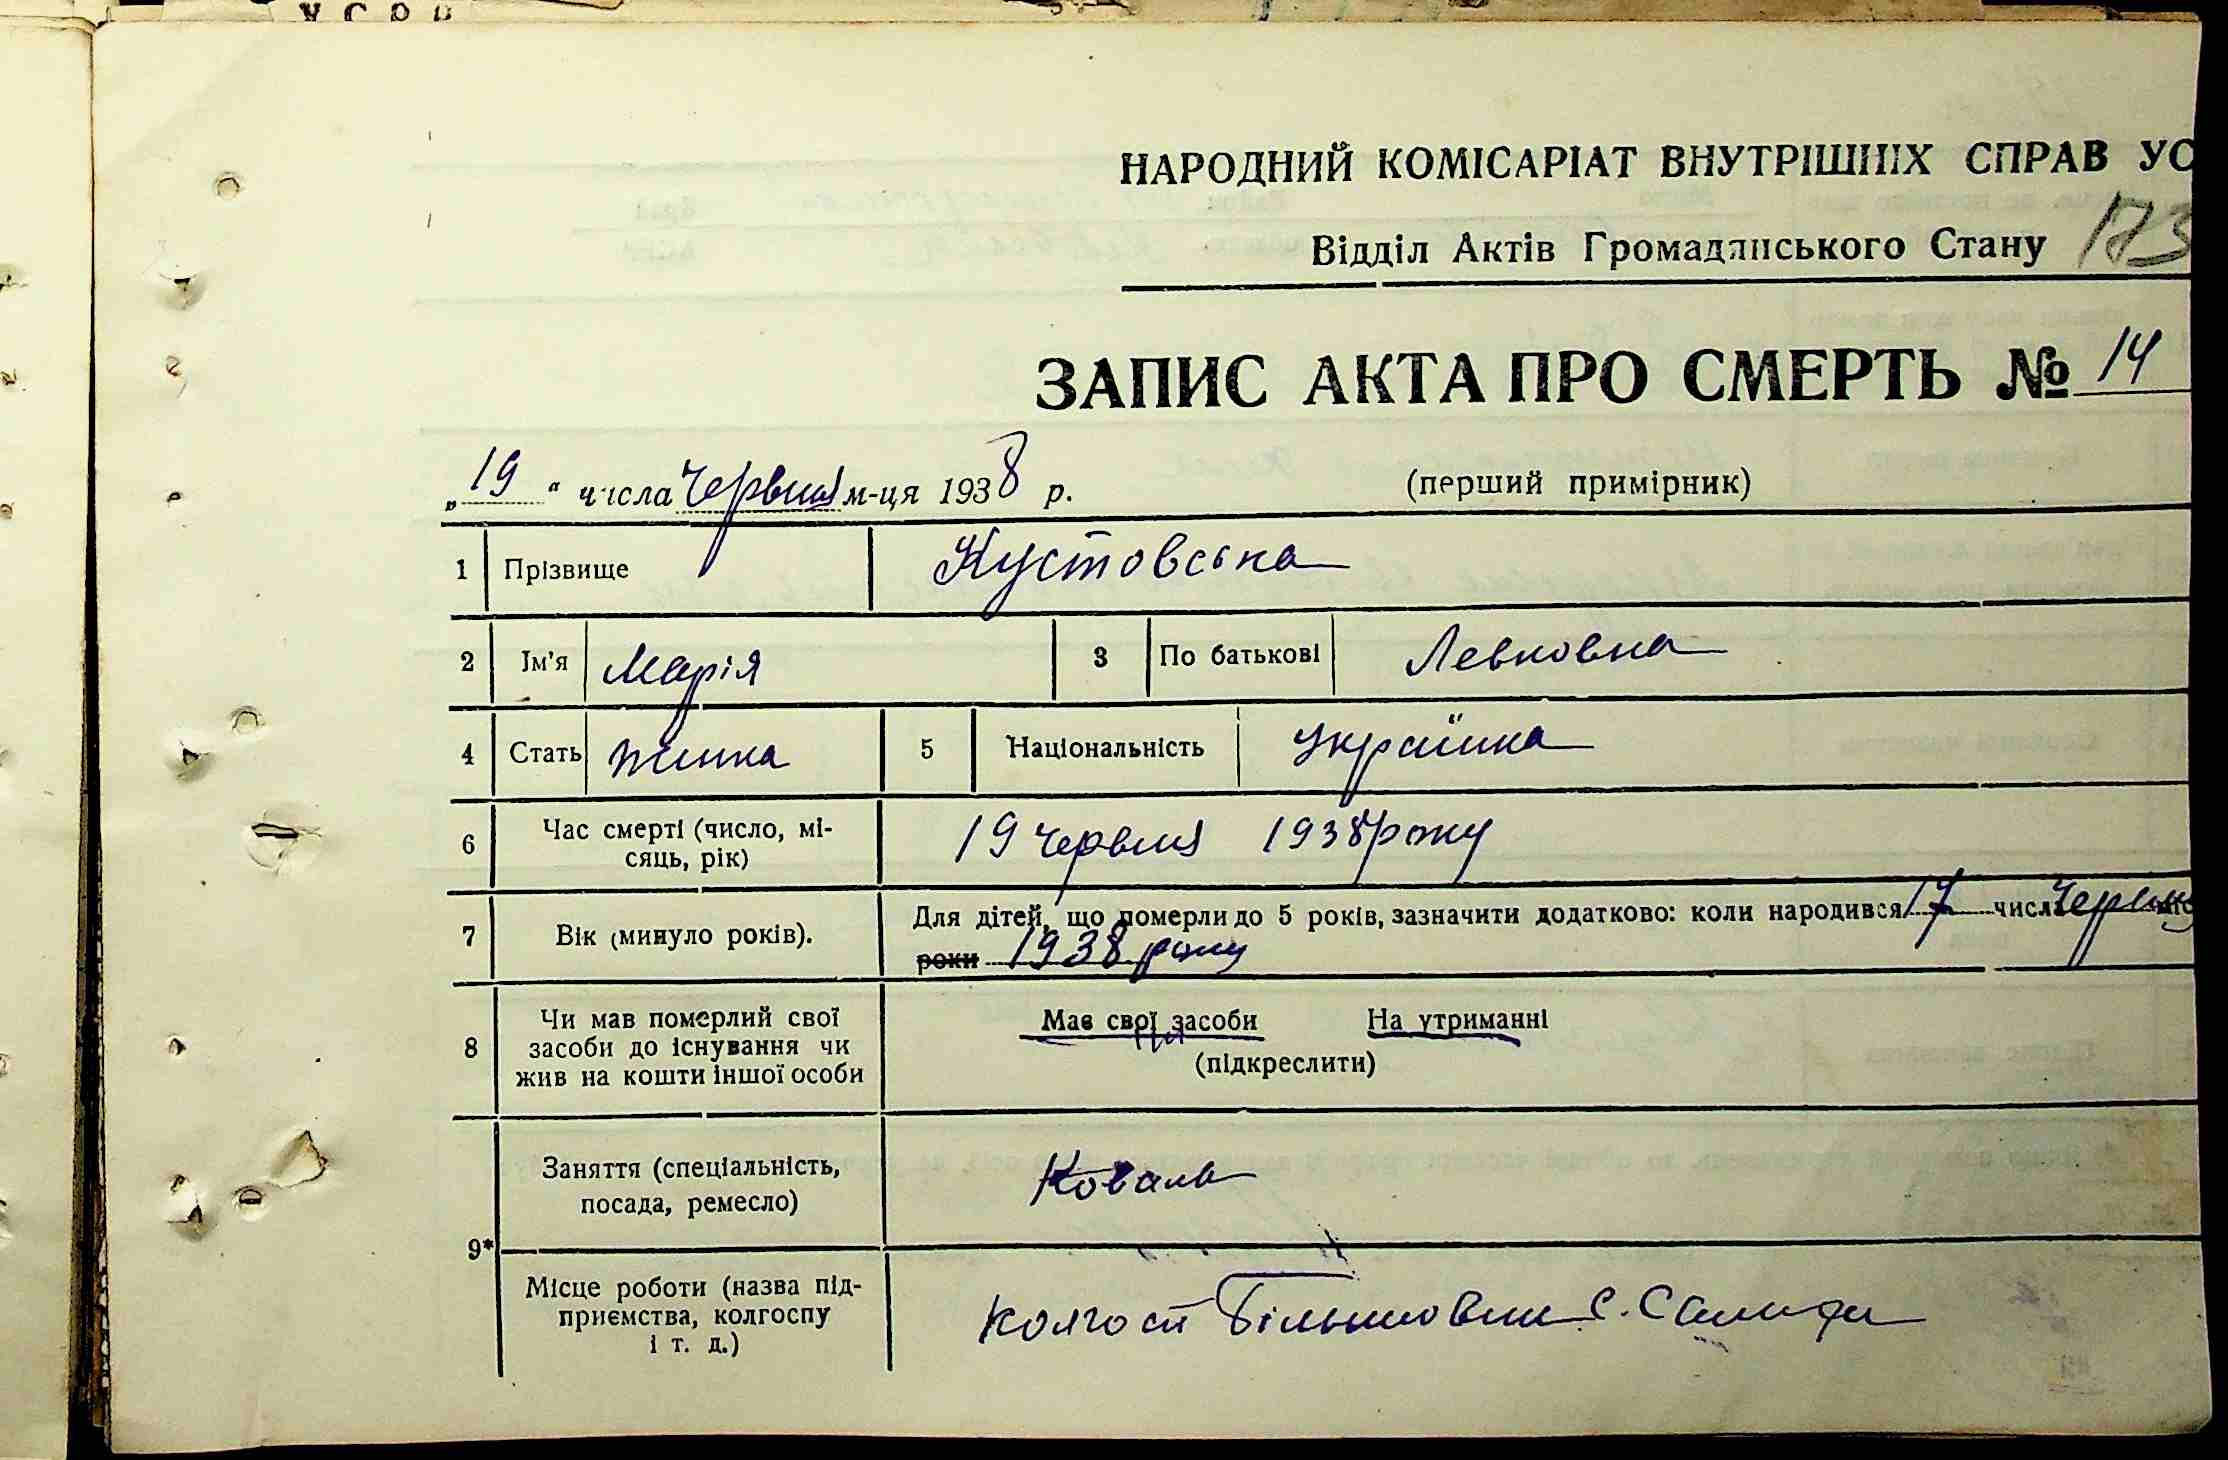 У С Р Р
НАРОДНИЙ КОМІСАРІАТ ВНУТРІШНІХ СПРАВ УС
Відділ Актів Громадянського Стану 173
ЗАПИС АКТА ПРО СМЕРТЬ № 14
„19“ числа Червня м-ця 1938 р. (перший примірник)
1 Прізвище Кустовська
2 Ім'я Марія 3 По батькові Левковна
4 Стать жінка 5 Національність Українка
6 Час смерті (число, мі-
сяць, рік) 19 червня 1938 року
7 Вік (минуло років). Для дітей, що померли до 5 років, зазначити додатково: коли народився 17 числа Червня
роки 1938 року
8 Чи мав померлий свої
засоби до існування чи
жив на кошти іншої особи
Має свої засоби На утриманні
(підкреслити)
9*
Заняття (спеціальність,
посада, ремесло) Коваль
Місце роботи (назва під-
приємства, колгоспу
і т. д.)
колгосп Більшовик с.